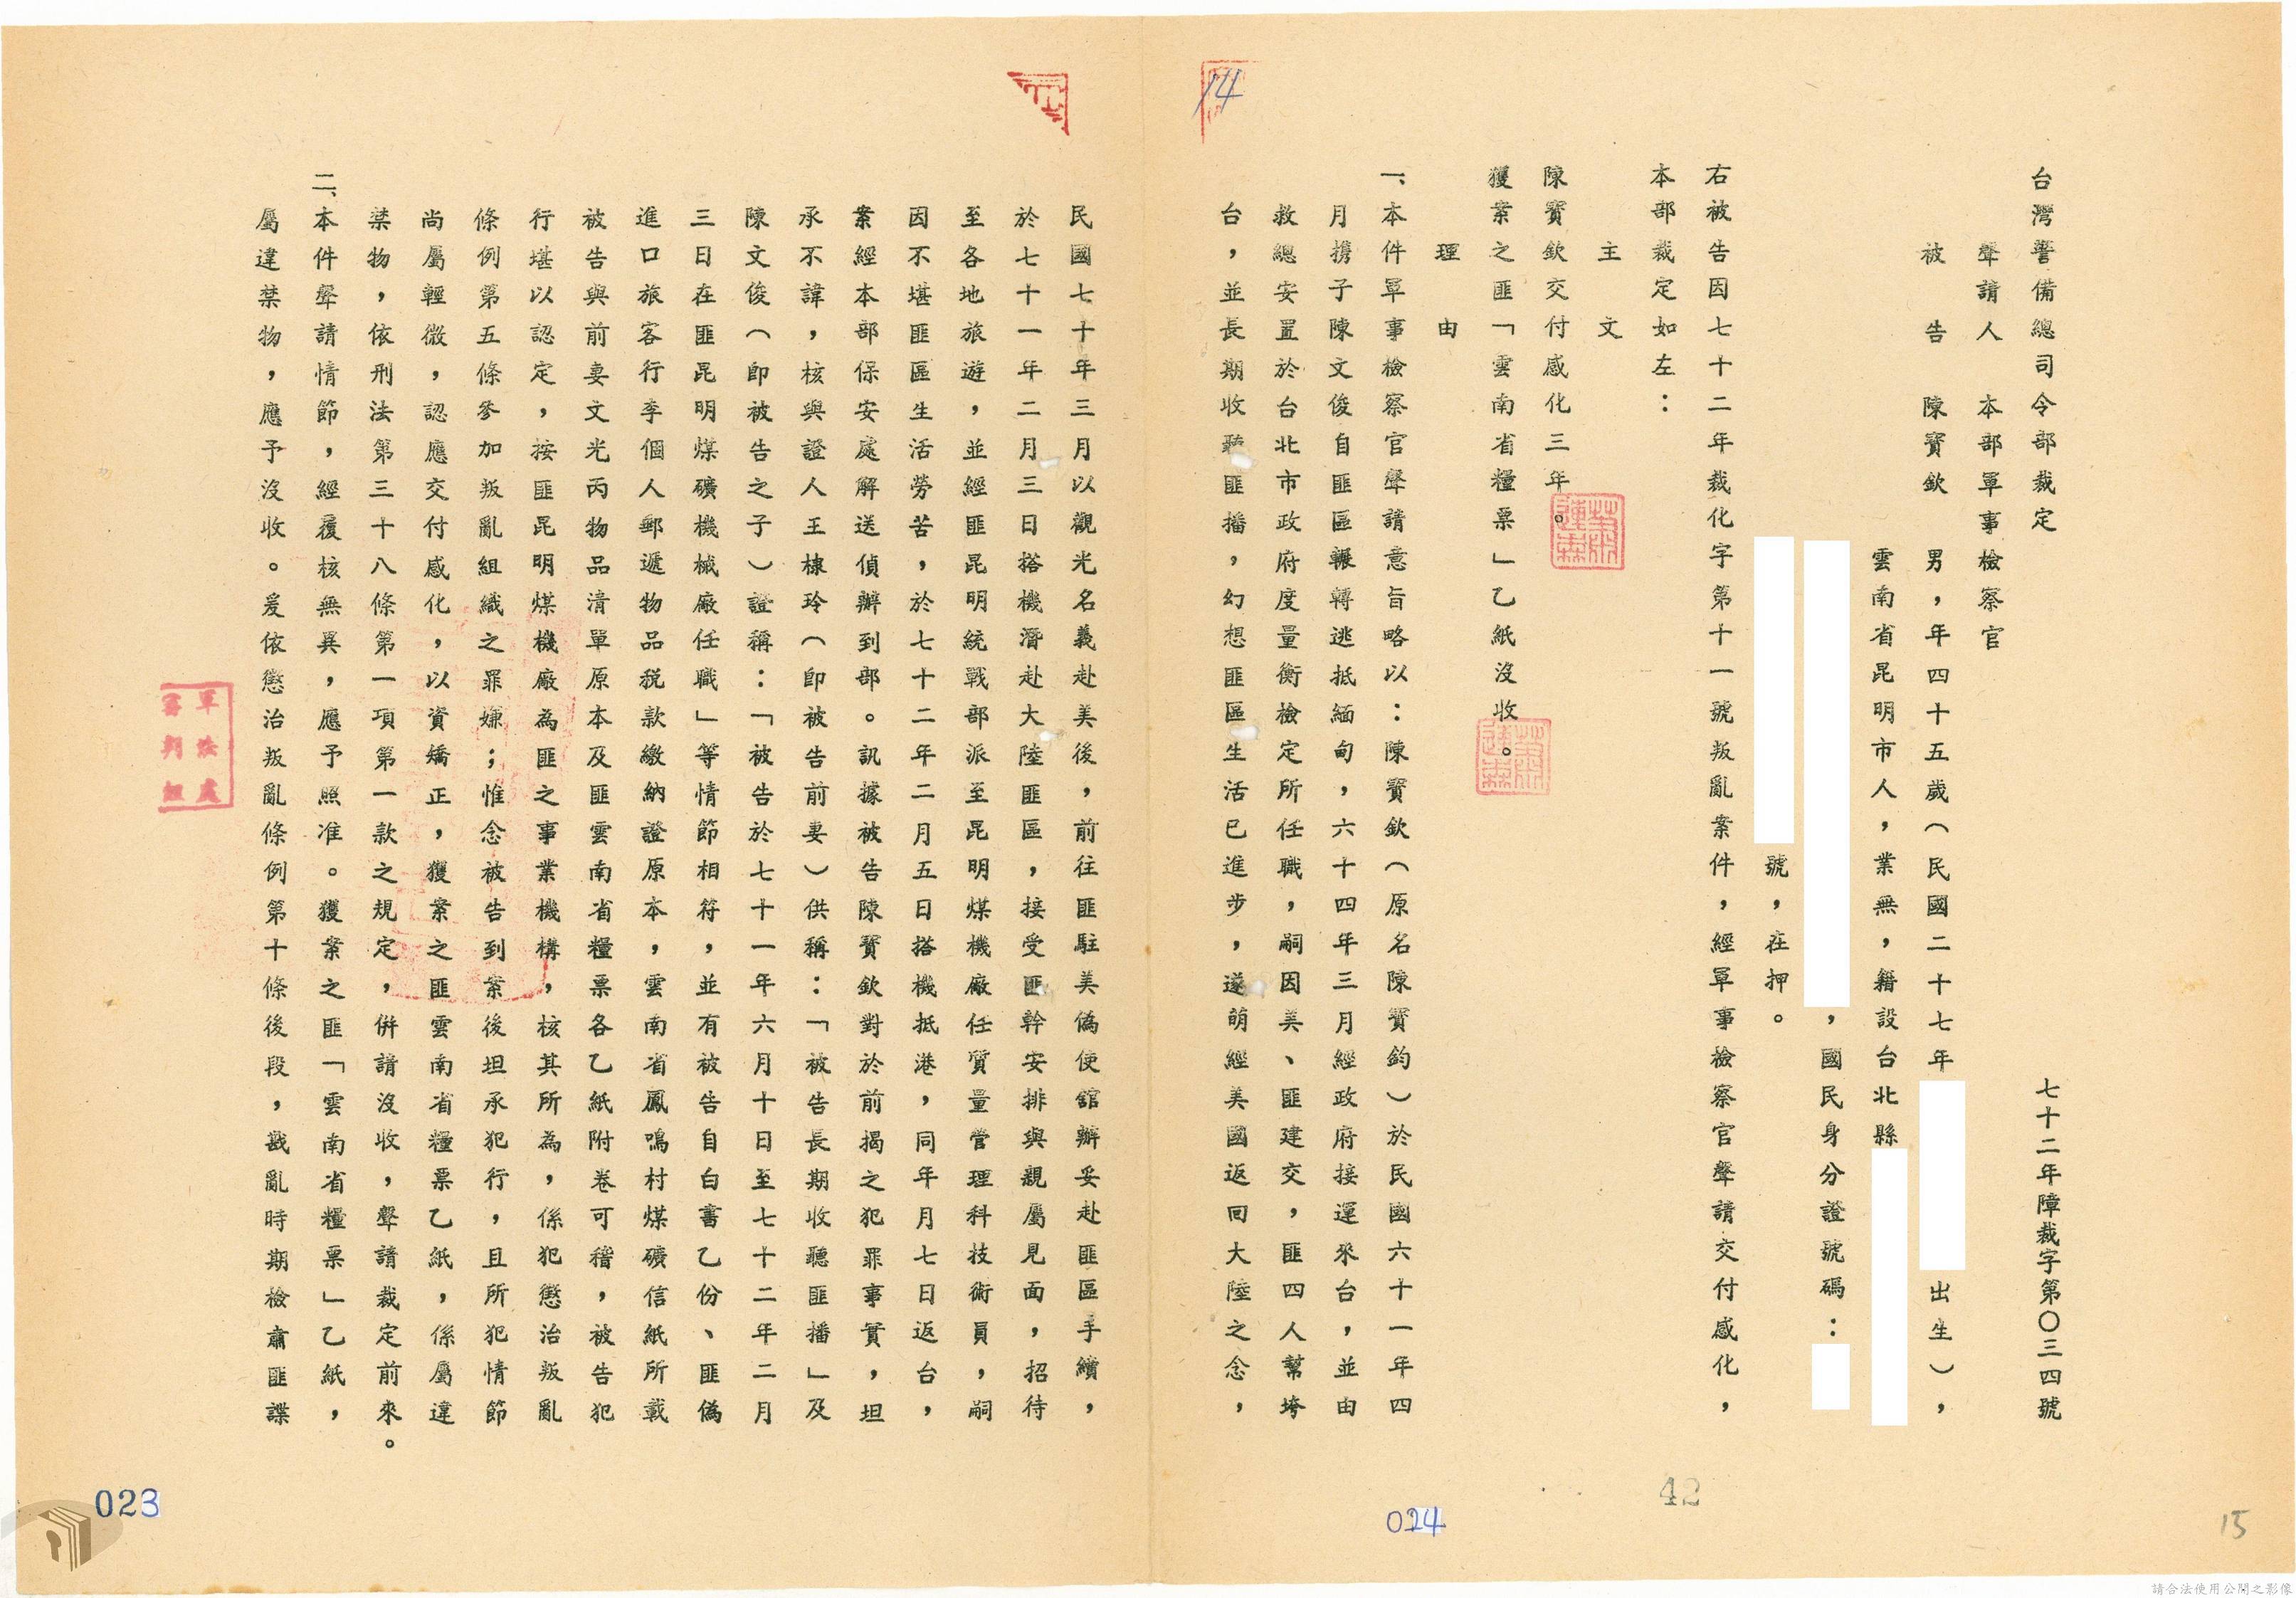 台灣警備總司令部裁定
七十二年障裁字第〇三四號
聲請人　本部軍事檢察官
被告　陳寶欽　男，年四十五歲（民國二十七年
出生），
雲南省昆明市人，業無，籍設台北縣
，國民身分證號碼：
號，在押。
右被告因七十二年裁化字第十一號叛亂案件，經軍事檢察官聲請交付感化，
本部裁定如左：
主文
陳寶欽交付感化三年。
獲案之匪「雲南省糧票」乙紙沒收。
理由
一、本件軍事檢察官聲請意旨略以：陳寶欽（原名陳寶鈞）於民國六十一年四
月携子陳文俊自匪區輾轉逃抵緬甸，六十四年三月經政府接運來台，並由
救總安置於台北市政府度量衡檢定所任職，嗣因美、匪建交，匪四人幫垮
台，並長期收聽匪播，幻想匪區生活已進步，遂萌經美國返回大陸之念，
民國七十年三月以觀光名義赴美後，前往匪駐美偽使館辦妥赴匪區手續，
於七十一年二月三日搭機潛赴大陸匪區，接受匪幹安排與親屬見面，招待
至各地旅遊，並經匪昆明統戰部派至昆明煤機廠任質量管理科技術員，嗣
因不堪匪區生活勞苦，於七十二年二月五日搭機抵港，同年月七日返台，
案經本部保安處解送偵辦到部。訊據被告陳寶欽對於前揭之犯罪事實，坦
承不諱，核與證人王棣玲（即被告前妻）供稱：「被告長期收聽匪播」及
陳文俊（即被告之子）證稱：「被告於七十一年六月十日至七十二年二月
三日在匪昆明煤礦機械廠任職」等情節相符，並有被告自白書乙份、匪偽
進口旅客行李個人郵遞物品稅款繳納證原本，雲南省鳳鳴村煤礦信紙所載
被告與前妻文光丙物品清單原本及匪雲南省糧票各乙紙附卷可稽，被告犯
行堪以認定，按匪昆明煤機廠為匪之事業機構，核其所為，係犯懲治叛亂
條例第五條參加叛亂組織之罪嫌；惟念被告到案後坦承犯行，且所犯情節
尚屬輕微，認應交付感化，以資矯正，獲案之匪雲南省糧票乙紙，係屬違
禁物，依刑法第三十八條第一項第一款之規定，併請沒收，聲請裁定前來。
二、本件聲請情節，經覆核無異，應予照准。獲案之匪「雲南省糧票」乙紙，
屬違禁物，應予沒收。爰依懲治叛亂條例第十條後段，戡亂時期檢肅匪諜
軍法處
審判組
14
42
15
024
023
請合法使用公開之影像